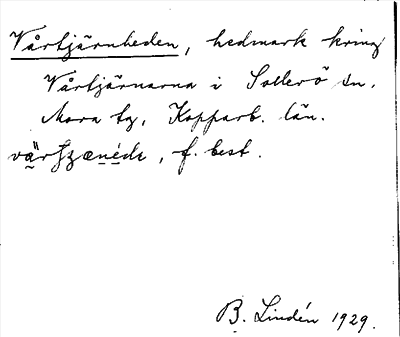 Vårtjärnheden, hedmark kring
Vårtjärnarna i Sollerö sn.
Mora tg, Kopparb. län.
f. best.
B. Lindén 1929.